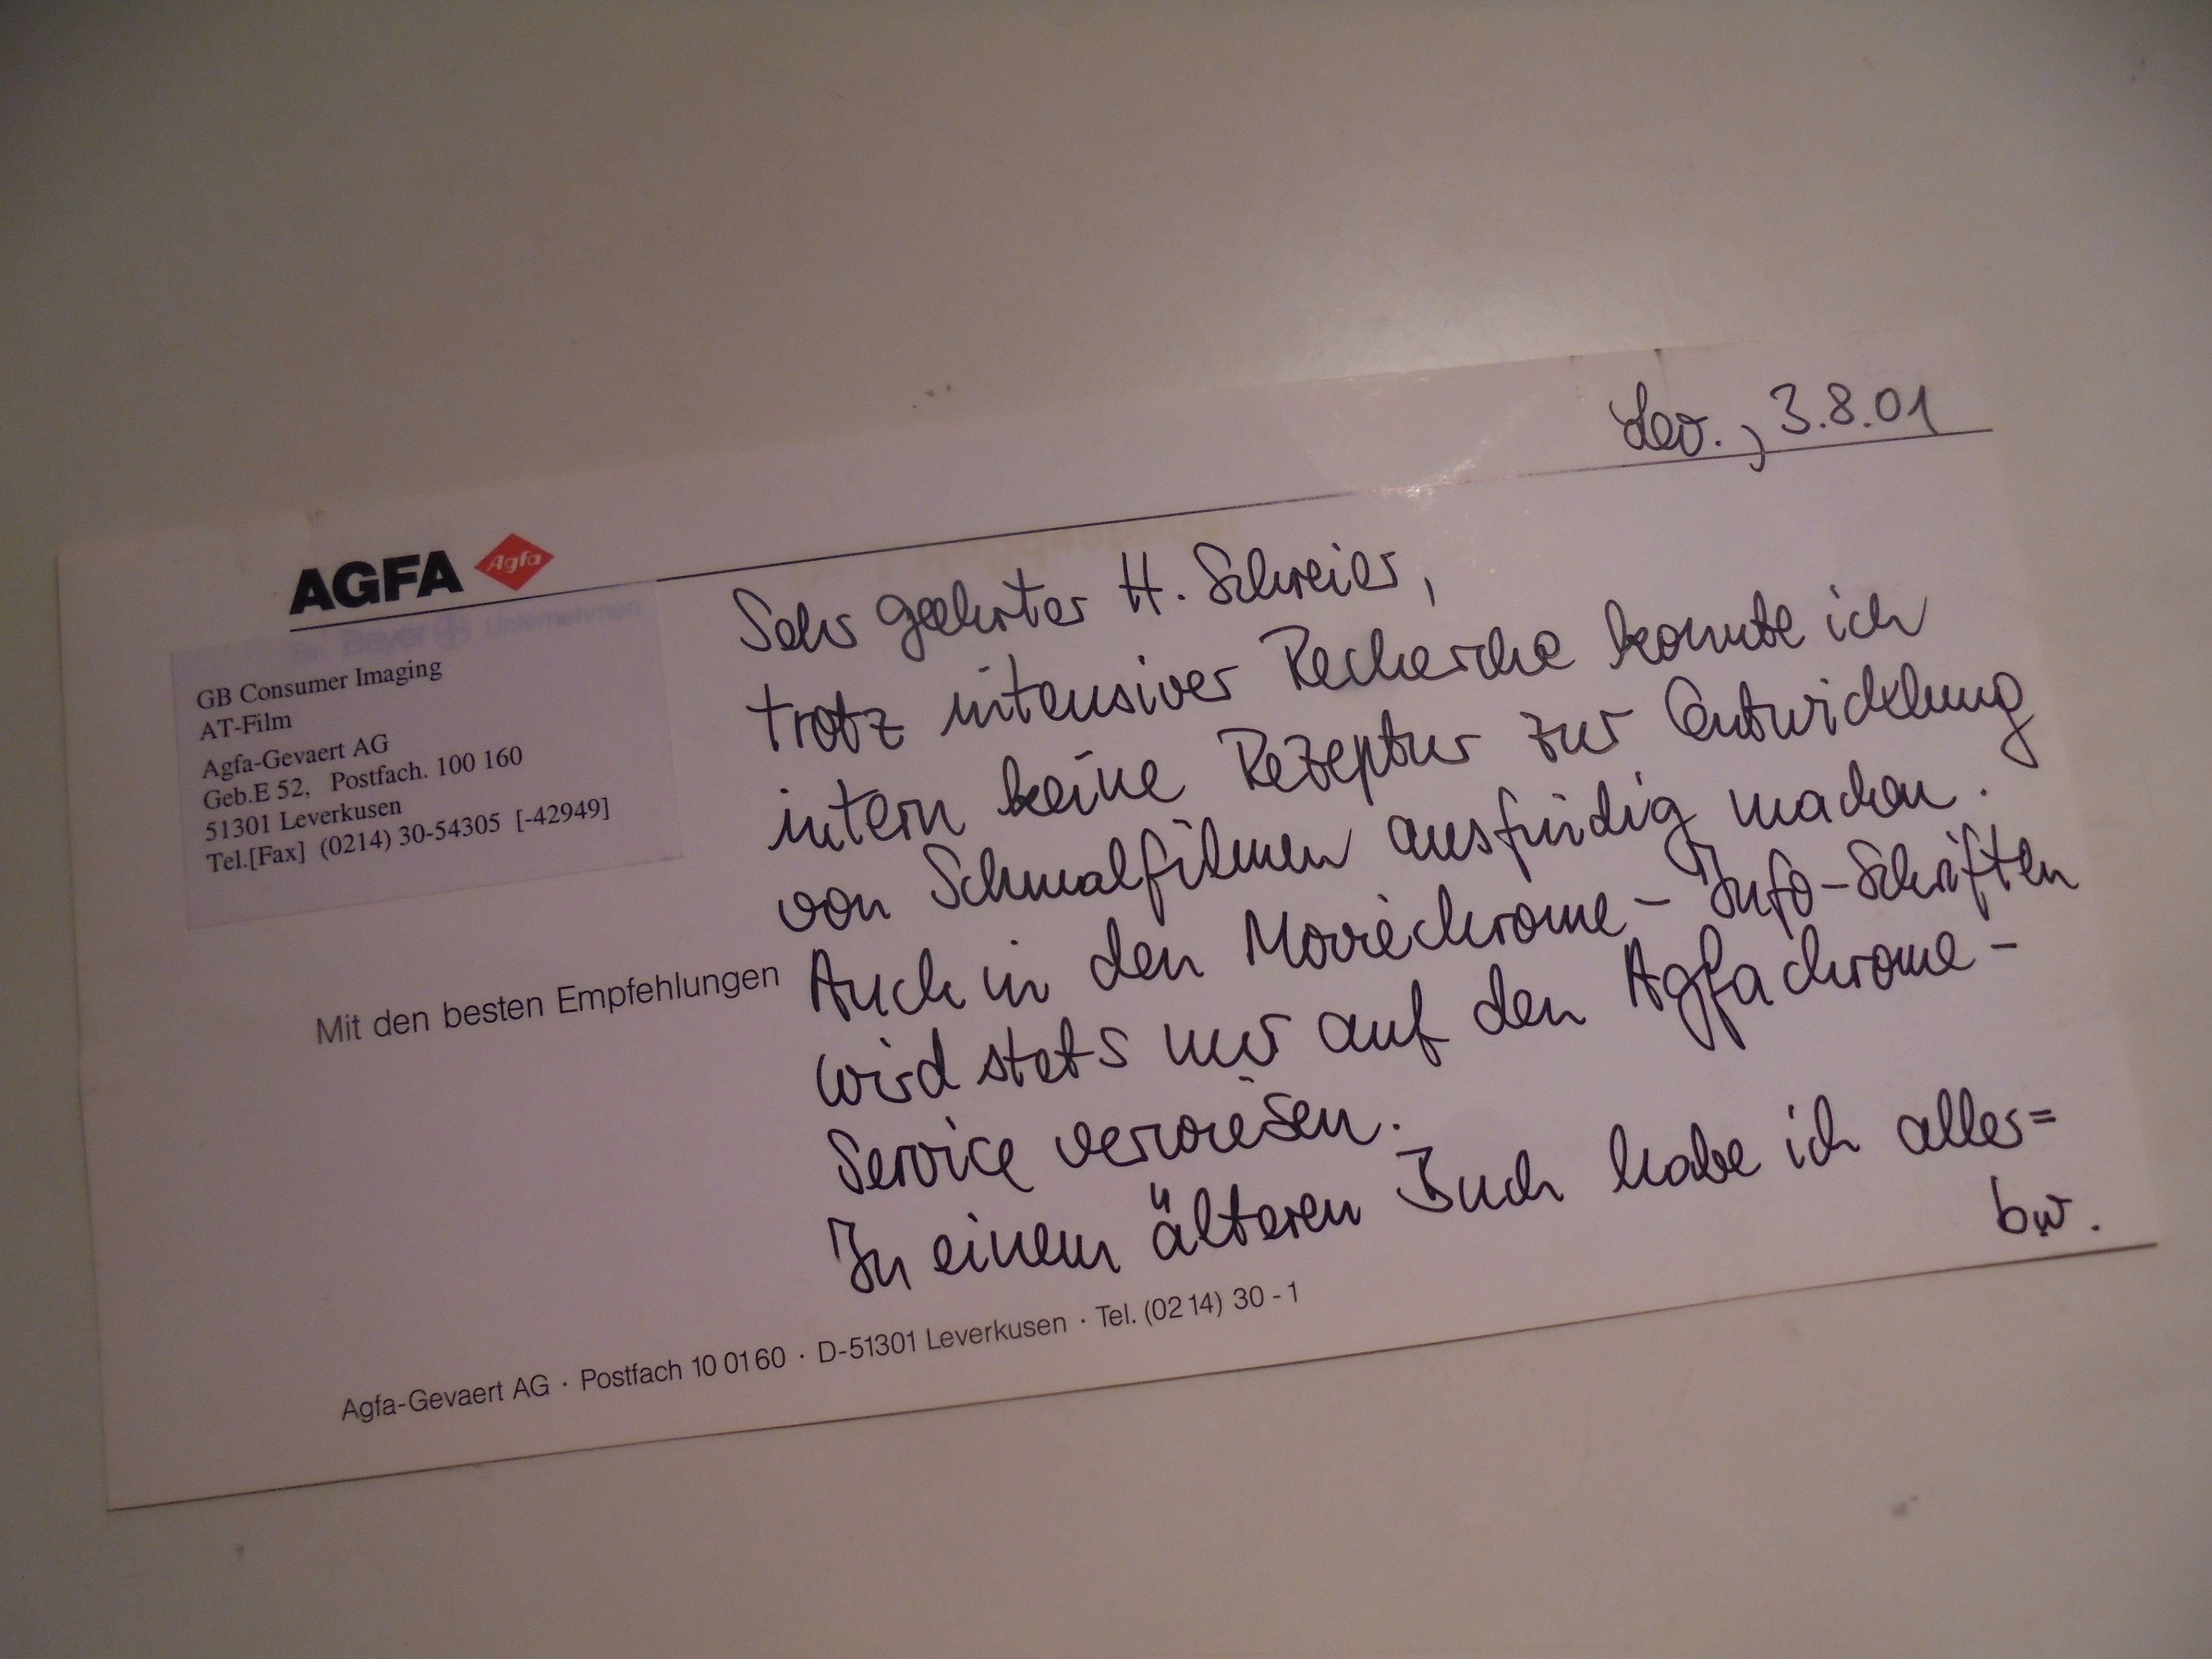 Lev., 3.8.01
AGFA Agfa
Bayer Unternehmen
GB Consumer Imaging
AT-Film
Agfa-Gevaert AG
Geb.E 52, Postfach. 100 160
51301 Leverkusen
Tel.[Fax] (0214) 30-54305 [-42949]
Mit den besten Empfehlungen
Sehr geehrter H. Schreier,
trotz intensiver Recherche konnte ich
intern keine Rezeptur zur Entwicklung
von Schmalfilmen ausfindig machen.
Auch in den Moviechrome-Info-Schriften
wird stets nur auf den Agfachrome-
Service verwiesen.
In einem älteren Buch habe ich aller=
b.w.
Agfa-Gevaert AG · Postfach 10 01 60 · D-51301 Leverkusen · Tel. (02 14) 30 - 1